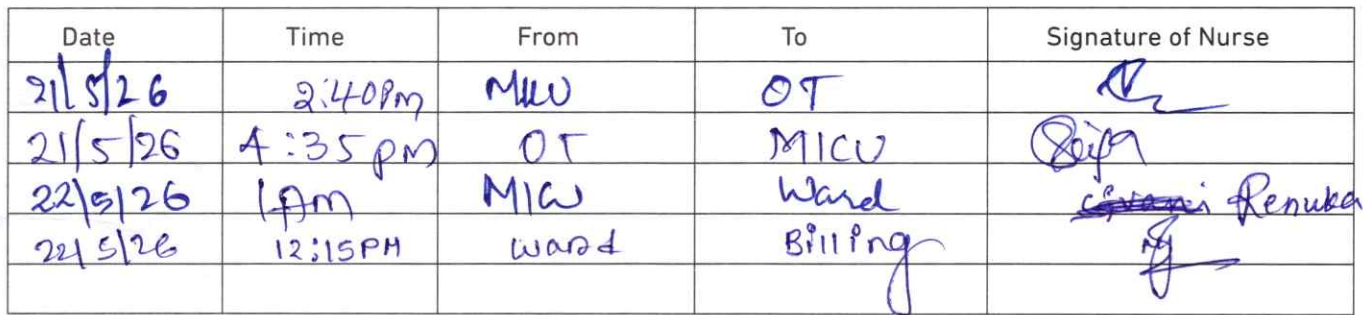 Date Time From To Signature of Nurse
21/5/26 2:40pm MICU OT
21/5/26 4:35 pm OT MICU
22/5/26 1Am MICU Ward Renuka
22/5/26 12:15PM ward Billing